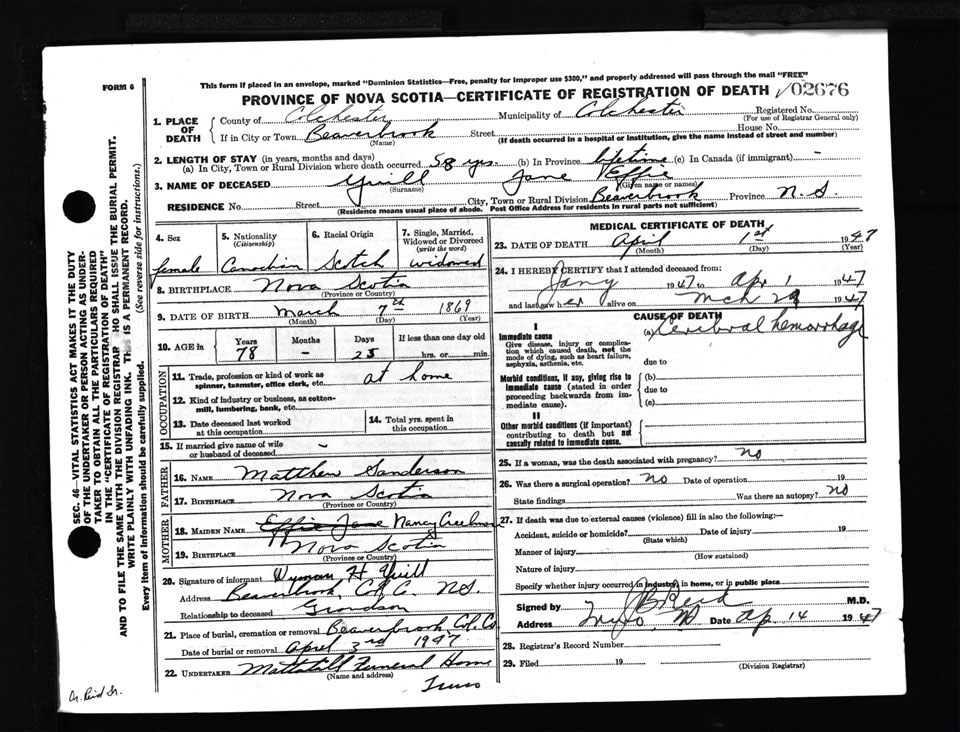 FORM 6
This form if placed in an envelope, marked "Dominion Statistics—Free, penalty for improper use $300," and properly addressed will pass through the mail "FREE"
PROVINCE OF NOVA SCOTIA—CERTIFICATE OF REGISTRATION OF DEATH 02676
1. PLACE OF DEATH
County of Colchester Municipality of Colchester Registered No.
(For use of Registrar General only)
If in City or Town Beaverbrook Street House No.
(Name) (If death occurred in a hospital or institution, give the name instead of street and number)
2. LENGTH OF STAY (in years, months and days)
(a) In City, Town or Rural Division where death occurred 58 yrs. (b) In Province lifetime (c) In Canada (if immigrant) -
3. NAME OF DECEASED Yuill Jane Effie
(Surname) (Given name or names)
RESIDENCE No. Street City, Town or Rural Division Beaverbrook Province N.S.
(Residence means usual place of abode. Post Office Address for residents in rural parts not sufficient)
4. Sex
female
5. Nationality
(Citizenship)
Canadian
6. Racial Origin
Scotch
7. Single, Married, Widowed or Divorced
(write the word)
widowed
8. BIRTHPLACE Nova Scotia
(Province or Country)
9. DATE OF BIRTH March 7th 1869
(Month) (Day) (Year)
10. AGE in
Years Months Days If less than one day old
78 - 25 hrs. or min.
OCCUPATION
11. Trade, profession or kind of work as spinner, teamster, office clerk, etc. at home
12. Kind of industry or business, as cotton-mill, lumbering, bank, etc.
13. Date deceased last worked at this occupation
14. Total yrs. spent in this occupation
15. If married give name of wife or husband of deceased -
FATHER
16. NAME Matthew Sanderson
17. BIRTHPLACE Nova Scotia
(Province or Country)
MOTHER
18. MAIDEN NAME Effie Jane Nancy Creelman
19. BIRTHPLACE Nova Scotia
(Province or Country)
20. Signature of informant Wyman H Yuill
Address Beaverbrook, Col. C. N.S.
Relationship to deceased Grandson
21. Place of burial, cremation or removal Beaverbrook Col. Co
Date of burial or removal April 3rd 1947
22. UNDERTAKER Mattatall Funeral Home
(Name and address)
Truro
MEDICAL CERTIFICATE OF DEATH
23. DATE OF DEATH April 1st 1947
(Month) (Day) (Year)
24. I HEREBY CERTIFY that I attended deceased from:
Jany 1947 to Apr 1 1947
and last saw her alive on Mch 1947
CAUSE OF DEATH
I
Immediate cause
Give disease, injury or complication which caused death, not the mode of dying, such as heart failure, asphyxia, asthenia, etc.
(a) Cerebral hemorrhage
due to
Morbid conditions, if any, giving rise to immediate cause (stated in order proceeding backwards from immediate cause).
(b)
due to
(c)
II
Other morbid conditions (if important) contributing to death but not causally related to immediate cause.
25. If a woman, was the death associated with pregnancy? no
26. Was there a surgical operation? no Date of operation 19
State findings Was there an autopsy? no
27. If death was due to external causes (violence) fill in also the following:—
Accident, suicide or homicide? Date of injury 19
(State which)
Manner of injury
(How sustained)
Nature of injury
Specify whether injury occurred in industry, in home, or in public place
Signed by JB Reid M.D.
Address Truro, NS Date Ap. 14 1947
28. Registrar's Record Number
29. Filed 19
(Division Registrar)
SEC. 46—VITAL STATISTICS ACT MAKES IT THE DUTY
OF THE UNDERTAKER OR PERSON ACTING AS UNDER-
TAKER TO OBTAIN ALL THE PARTICULARS REQUIRED
IN THE "CERTIFICATE OF REGISTRATION OF DEATH"
AND TO FILE THE SAME WITH THE DIVISION REGISTRAR HO SHALL ISSUE THE BURIAL PERMIT.
WRITE PLAINLY WITH UNFADING INK. IS A PERMANENT RECORD.
Every item of Information should be carefully supplied. (See reverse side for instructions.)
Dr. Reid Sr.